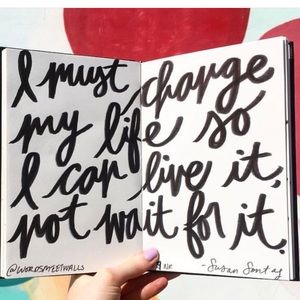 I must change
my life so
I can live it,
not wait for it.
@WORDSMEETWALLS
- Susan Sontag